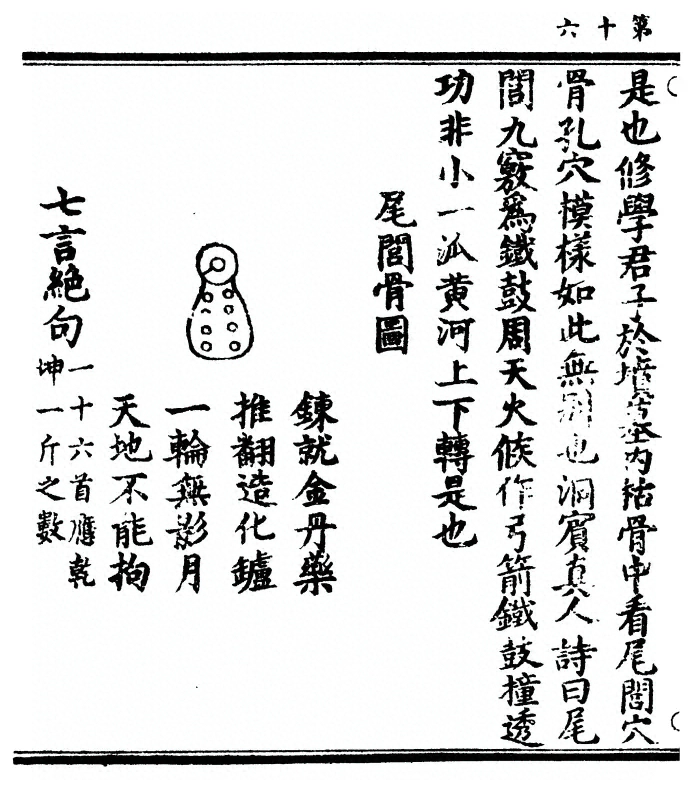 第十六
是也修學君子於墳墓內枯骨中看尾閭穴
骨孔穴模樣如此無別也洞賓真人詩曰尾
閭九竅爲鐵鼓周天火候作弓箭鐵鼓撞透
功非小一派黄河上下轉是也
尾閭骨圖
鍊就金丹藥
推翻造化鑪
一輪無影月
天地不能拘
七言絶句
一十六首應乾
坤一斤之數